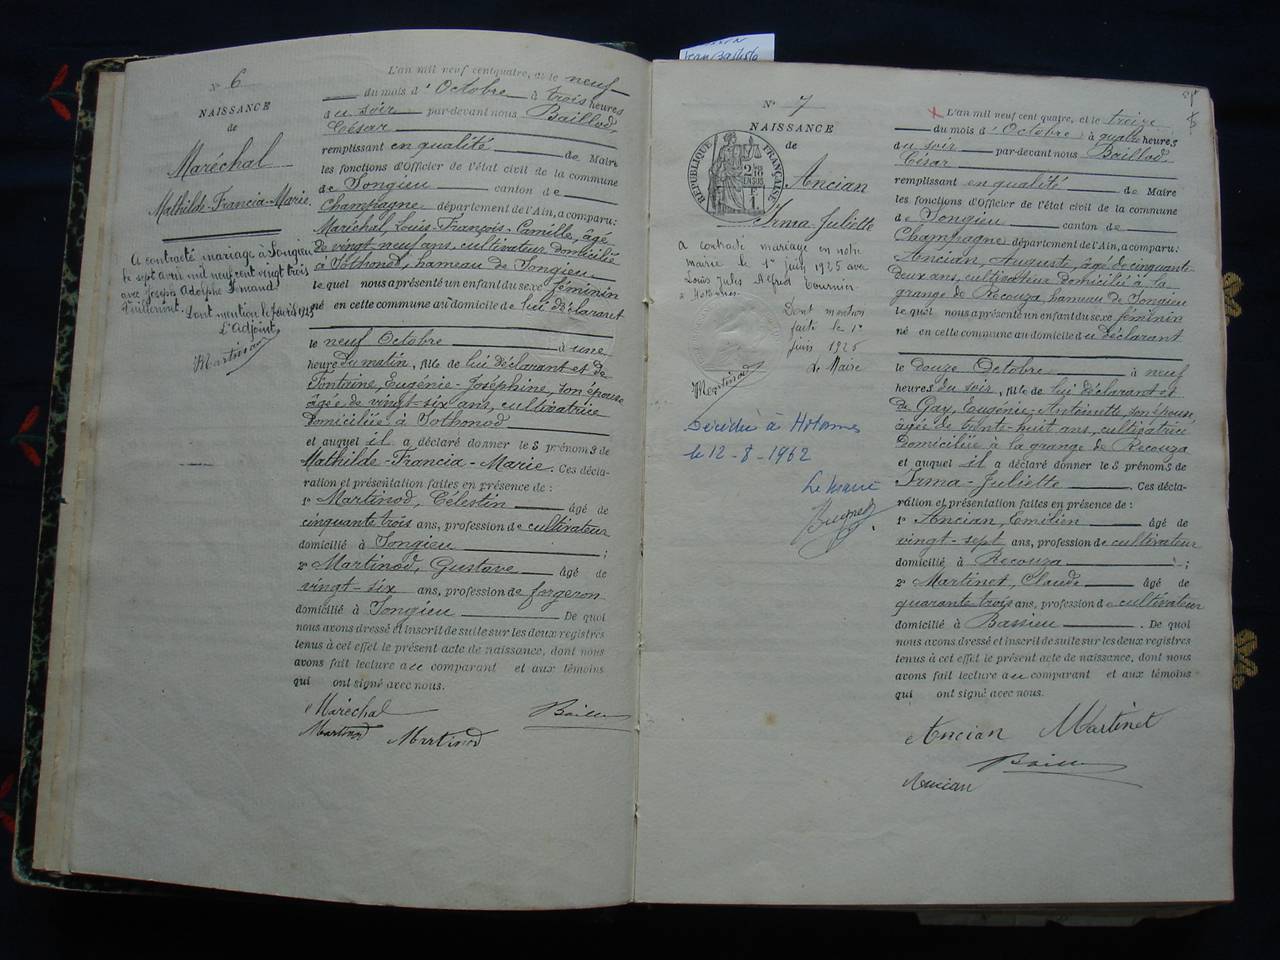 Jean Baptiste
N° 6
NAISSANCE
de
Maréchal
Mathilde-Francia-Marie
A contracté mariage à Songieu
le sept avril mil neuf cent vingt trois
avec Joseph Adolphe
Dont mention le
L'Adjoint
Martinod
L'an mil neuf cent quatre, et le neuf
du mois d'Octobre à trois heures
du soir par-devant nous Baillod,
César
remplissant en qualité de Maire
les fonctions d'Officier de l'état civil de la commune
de Songieu canton de
Champagne département de l'Ain, a comparu:
Maréchal, Louis-François-Camille, âgé
de vingt neuf ans, cultivateur domicilié
à Sothonod, hameau de Songieu
lequel nous a présenté un enfant du sexe féminin
né en cette commune au domicile de lui déclarant
le neuf Octobre à une
heure du matin, fille de lui déclarant et de
Fontaine, Eugénie-Joséphine, son épouse
âgée de vingt-six ans, cultivatrice
domiciliée à Sothonod
et auquel il a déclaré donner les prénoms de
Mathilde-Francia-Marie. Ces décla-
ration et présentation faites en présence de :
1° Martinod, Célestin âgé de
cinquante trois ans, profession de cultivateur
domicilié à Songieu ;
2° Martinod, Gustave âgé de
vingt-six ans, profession de forgeron
domicilié à Songieu. De quoi
nous avons dressé et inscrit de suite sur les deux registres
tenus à cet effet le présent acte de naissance, dont nous
avons fait lecture au comparant et aux témoins
qui ont signé avec nous.
Maréchal
Martinod Martinod
N° 7
NAISSANCE
de
RÉPUBLIQUE FRANÇAISE
2/10
EN SUS
F
1.
Ancian
Irma Juliette
A contracté mariage en notre
mairie le 1er juin 1925 avec
Louis Jules Alfred Tournier
à Hotonnes
Dont mention
faite le 1er
juin 1925
Le Maire
Martinod
Décédée à Hotonnes
le 12-8-1962
Le Maire
L'an mil neuf cent quatre, et le treize
du mois d'Octobre à quatre heures
du soir par-devant nous Baillod,
César
remplissant en qualité de Maire
les fonctions d'Officier de l'état civil de la commune
de Songieu canton de
Champagne département de l'Ain, a comparu:
Ancian, Auguste, âgé de cinquante-
deux ans, cultivateur domicilié à la
grange de Recouza, hameau de Songieu
lequel nous a présenté un enfant du sexe féminin
né en cette commune au domicile du déclarant
le douze Octobre à neuf
heures du soir, fille de lui déclarant et
de Gay, Eugénie-Antoinette, son épouse
âgée de trente-huit ans, cultivatrice
domiciliée à la grange de Recouza
et auquel il a déclaré donner les prénoms de
Irma-Juliette. Ces décla-
ration et présentation faites en présence de :
1° Ancian, Emilien âgé de
vingt-sept ans, profession de cultivateur
domicilié à Recouza ;
2° Martinet, Claude âgé de
quarante trois ans, profession de cultivateur
domicilié à Bassieu. De quoi
nous avons dressé et inscrit de suite sur les deux registres
tenus à cet effet le présent acte de naissance, dont nous
avons fait lecture au comparant et aux témoins
qui ont signé avec nous.
Ancian Martinet
Ancian